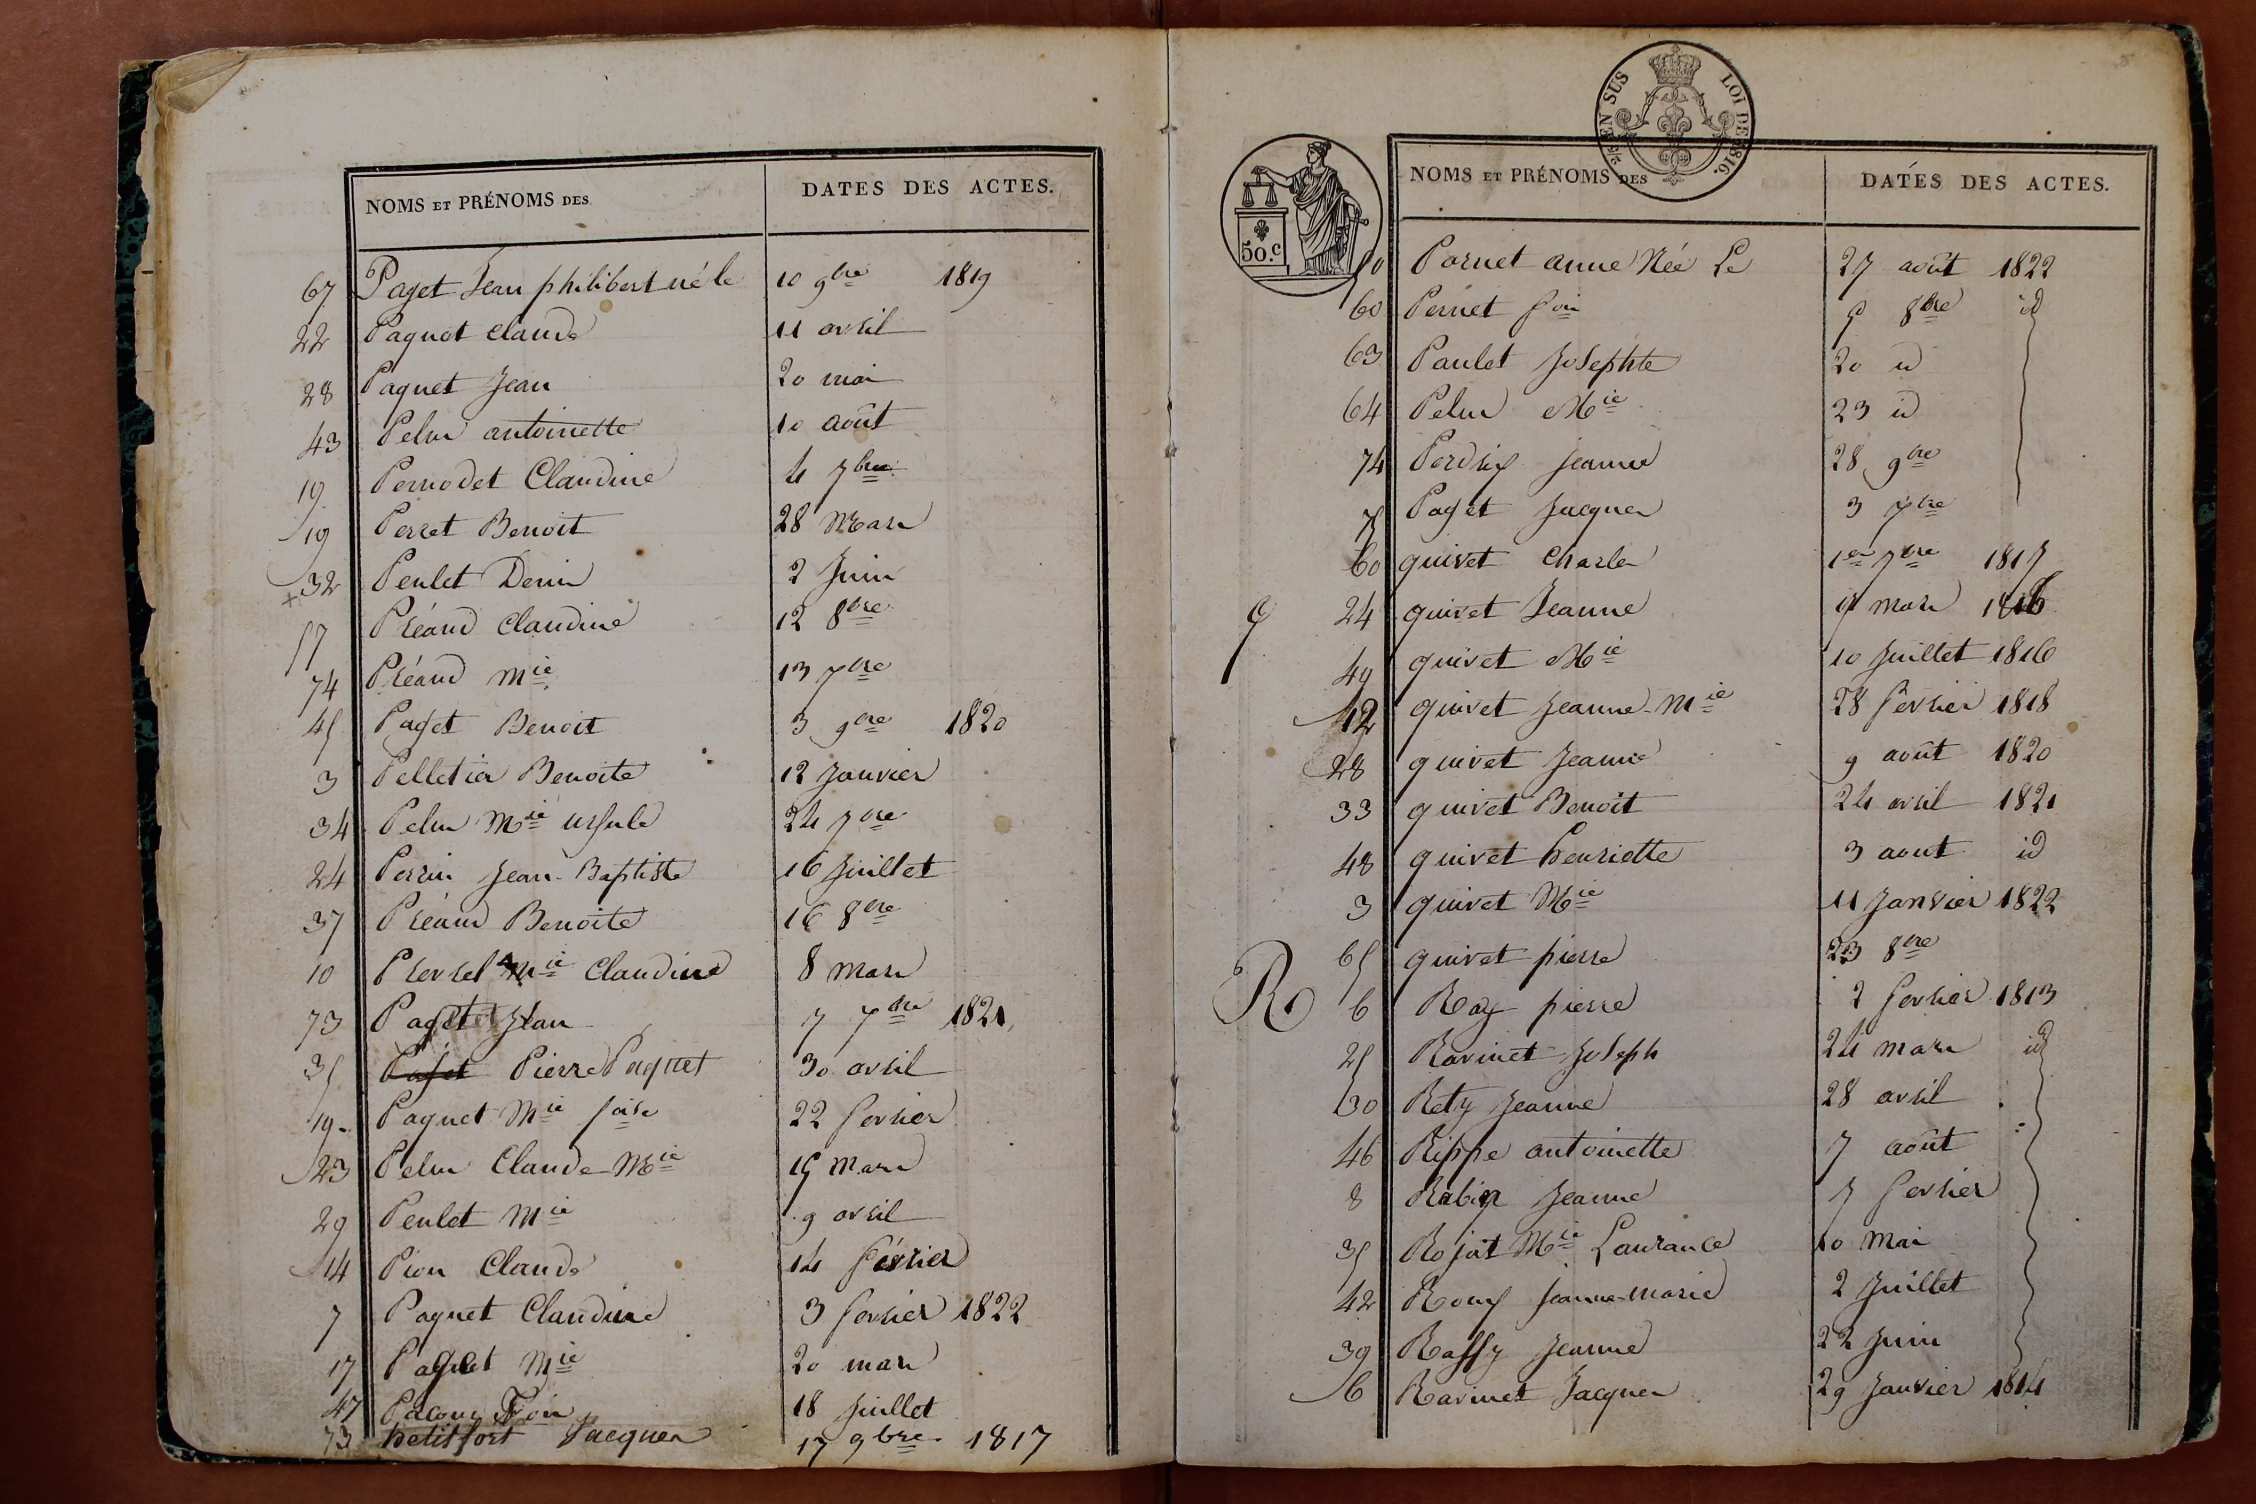 NOMS ET PRÉNOMS DES DATES DES ACTES.
67 Paget Jean philibert né le 10 9bre 1819
22 Paquet claude 11 avril
28 Paquet Jean 20 mai
43 Pelus antoinette 10 août
19 Pernodet Claudine 4 7bre
19 Perret Benoit 28 Mars
32 Peulet Denis 2 Juin
57 Préaud Claudine 12 8bre
74 Préaud Mie 13 7bre
45 Paget Benoit 3 9bre 1820
3 Pelletier Benoite 12 Janvier
34 Pelus Mie ursule 24 7bre
24 Perrin Jean-Baptiste 16 Juillet
37 Préaud Benoite 16 8bre
10 Mie Claudine 8 mars
73 Paget Jean 7 7bre 1821
35 Paget Pierre Paquet 30 avril
19 Paquet Mie foise 22 fevrier
23 Pelus Claude Mie 15 Mars
29 Peulet Mie 9 avril
14 Pion Claude 14 février
7 Paquet Claudine 3 fevrier 1822
17 Paquet Mie 20 mars
47 Pacoux Fois 18 Juillet
73 Petitfort Jacques 17 9bre 1817
2.E EN SUS LOI DE 1816.
50.c
NOMS ET PRÉNOMS DES DATES DES ACTES.
50 Pornet anne Née Le 27 août 1822
60 Pernet fois 5 8bre id
63 Paulet Josephte 20 id
64 Pelus Mie 23 id
74 Perdrix Jeanne 28 9bre
75 Paget Jacques 3 7bre
60 quivet Charles 1er 7bre 1817
q 24 quivet Jeanne mars 1816
49 quivet Mie 10 Juillet 1816
12 quivet Jeanne-Mie 28 fevrier 1818
28 quivet Jeanne 9 août 1820
33 quivet Benoit 24 avril 1821
48 quivet henriette 3 aout id
3 quivet Mie 11 Janvier 1822
65 quivet pierre 23 8bre
R 6 Ray pierre 2 fevrier 1813
25 Ravinet Joseph 24 mars id
30 Rety Jeanne 28 avril
46 Rippe antoinette 7 août
8 Rabin Jeanne 7 fevrier
35 Rojat Mie Laurance 10 Mai
42 Roux Jeanne-marie 2 Juillet
39 Raffy Jeanne 22 Juin
6 Ravinet Jacques 29 Janvier 1814